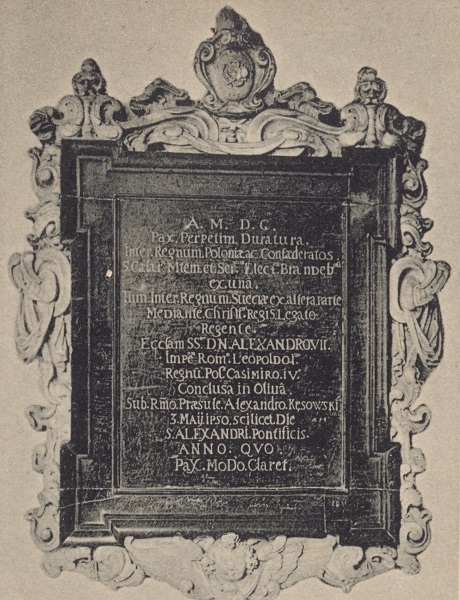 A. M. D. G.
Pax. Perpetim. Duratura.
Inter. Regnum. Poloniæ. ac. Confœderatos.
S. Cæsar. Mtem. et. Ser. Elect. Brandeb
ex. una.
Tum. Inter. Regnum. Sueciæ. ex. altera. parte
Mediante. Christ. Regis. Legato.
Regente.
Ecclam SS. D.N. ALEXANDRO VII.
Impe. Rom. LEOPOLDO I.
Regnū. Pol. CASIMIRO. iV.
Conclusa in Olivâ.
Sub. Rmo. Præsule. Alexandro. Kęsowski
3. Maij ipso. scilicet. Die
S. ALEXANDRI. Pontificis.
ANNO. QVO
PaX. MoDo. Claret.